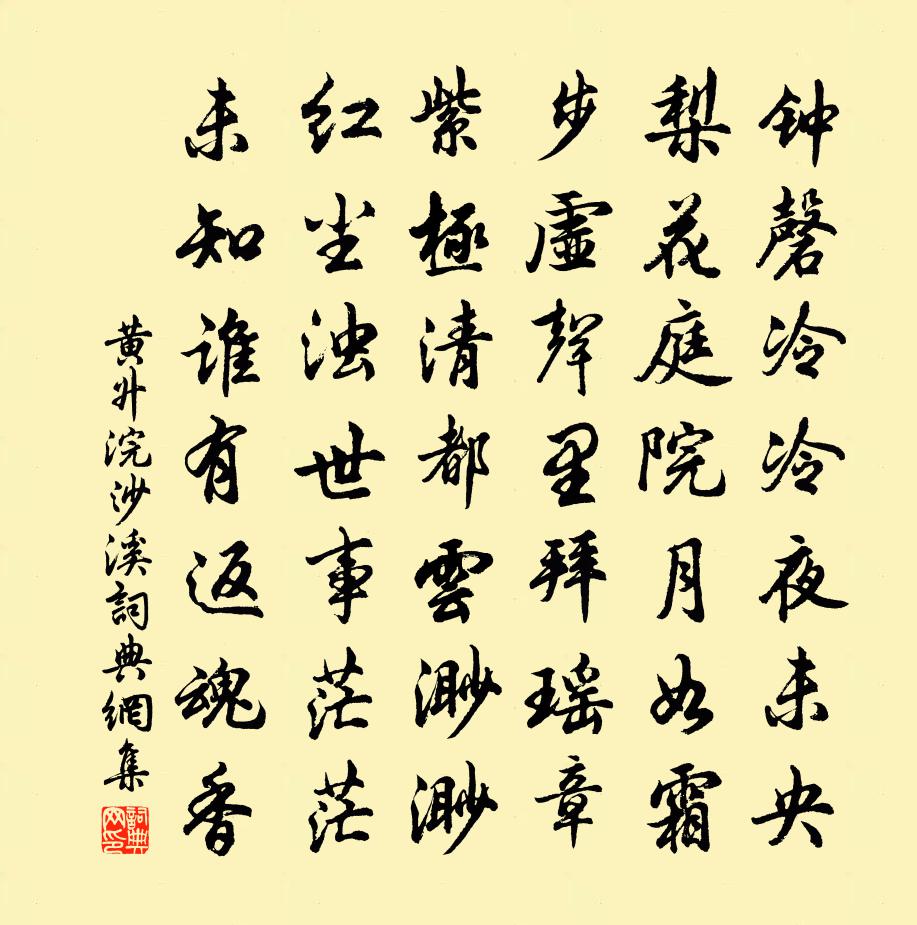 钟磬冷冷夜未央
梨花庭院月如霜
步虛聲里拜瑶章
紫極清都雲渺渺
红尘浊世事茫茫
未知谁有返魂香
黄升浣沙溪詞典網集
詞典網印